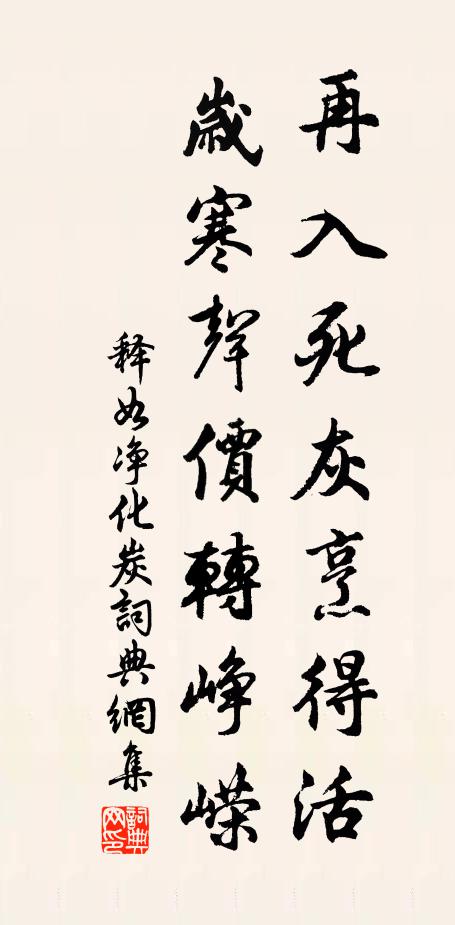 再入死灰烹得活
歲寒聲價轉崢嶸
释如净化炭詞典網集
詞典網印